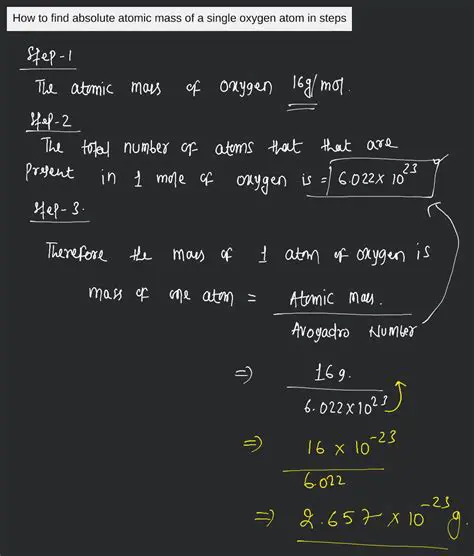 How to find absolute atomic mass of a single oxygen atom in steps
Step-1
The atomic mass of oxygen 16g/mol.
Step-2
The total number of atoms that that are
present in 1 mole of oxygen is = 6.022 × 10²³
Step-3.
Therefore the mass of 1 atom of oxygen is
mass of one atom = Atomic mass.
Avogadro Number
⇒ 16g.
6.022×10²³
⇒ 16 × 10⁻²³
6.022
⇒ 2.657 × 10⁻²³ g.